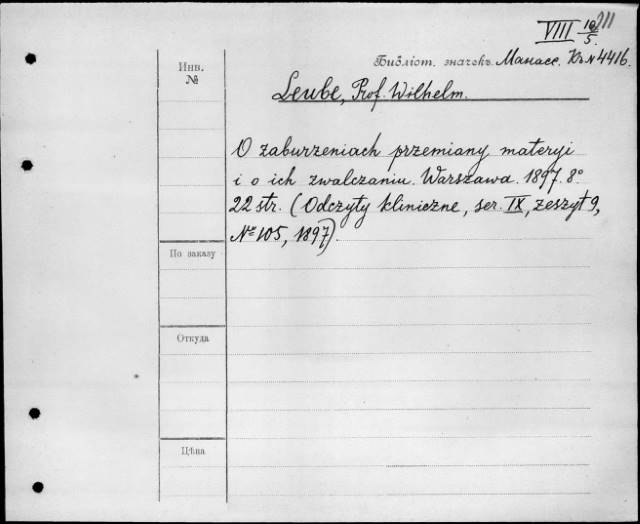 VIII 10/5.
Библіот. значекъ. Манасс. Къ № 4416.
Инв.
№
Leube, Prof. Wilhelm.
O zaburzeniach przemiany materyi
i o ich zwalczaniu. Warszawa. 1897. 8°
22 str. (Odczyty kliniczne, ser. IX, zeszyt 9,
№ 105, 1897).
По заказу
Откуда
Цѣна